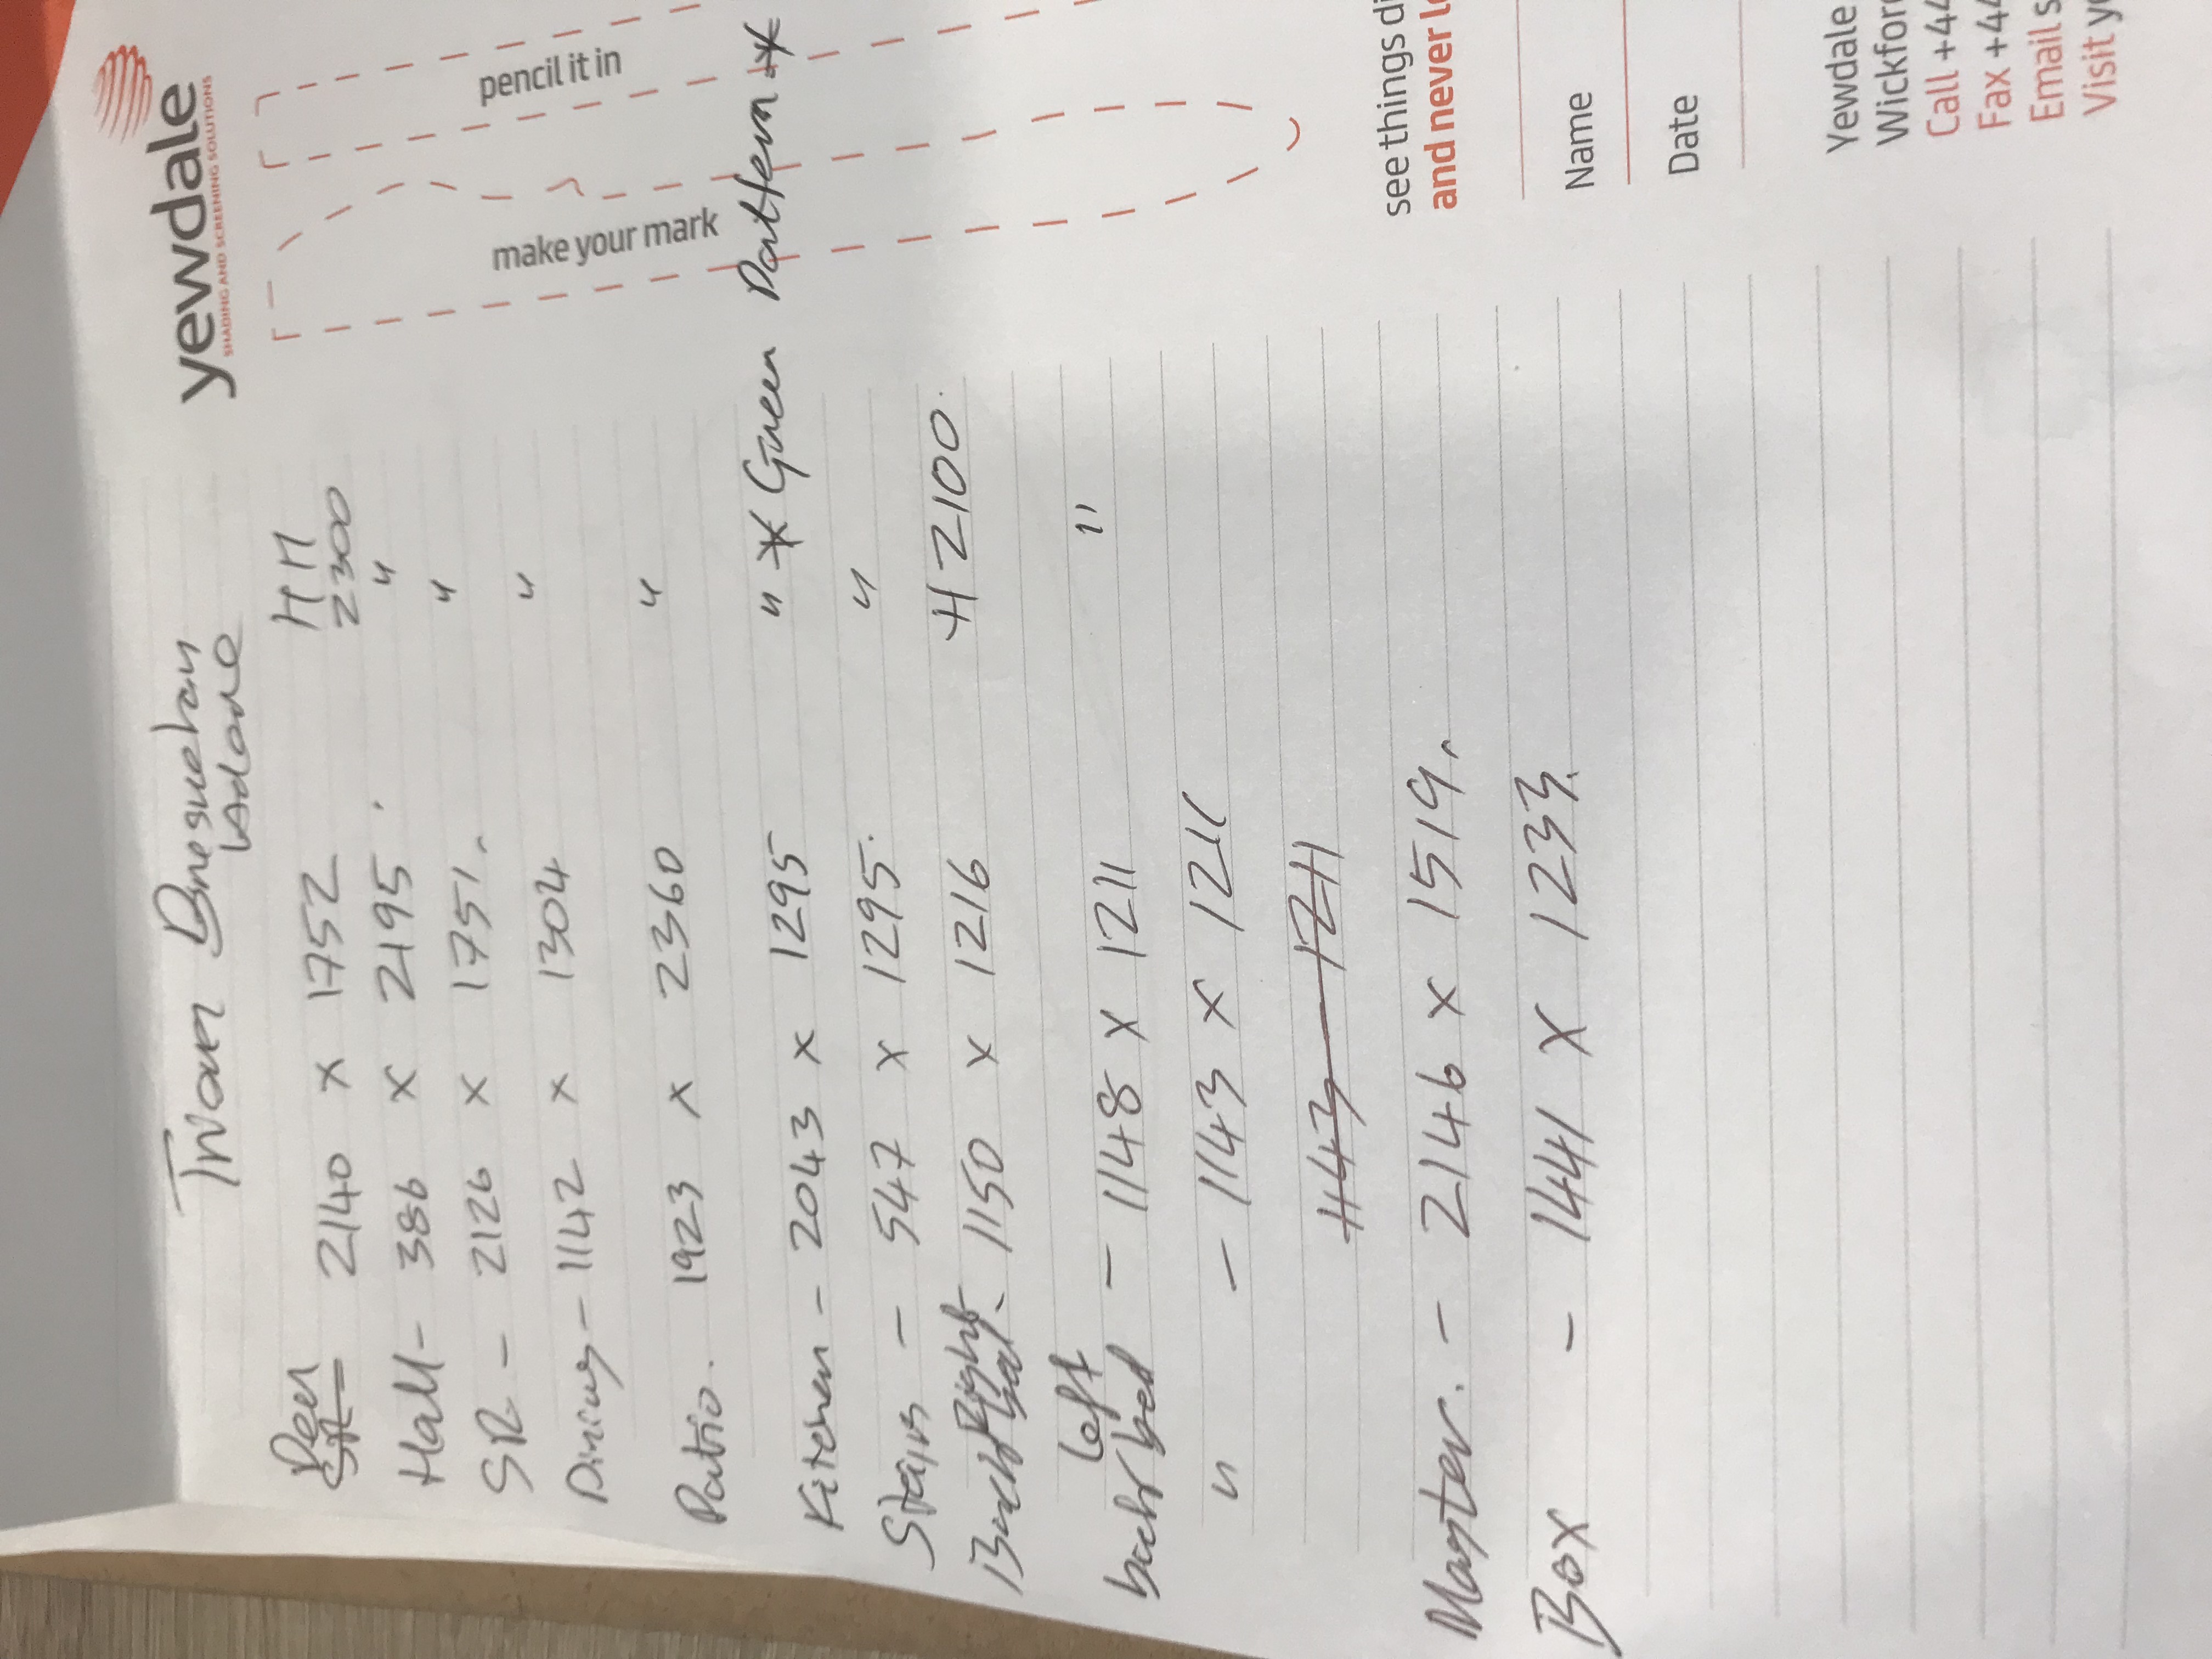 yewdale
SHADING AND SCREENING SOLUTIONS
Trevor
HH
Den 2140 x 1752 2300
Hall - 386 x 2195 "
SR - 2126 x 1751. "
Dining - 1142 x 1304 "
Patio. 1923 x 2360 "
Kitchen - 2043 x 1295 " * Green Pattern **
Stairs - 547 x 1295. "
Back Right bed. 1150 x 1216 H 2100.
Left
back bed - 1148 x 1211 "
" - 1143 x 1211
1143 1211
Master. - 2146 x 1519.
Box - 1441 x 1233.
pencil it in
make your mark
see things di
and never l
Name
Date
Yewdale
Wickford
Call +44
Fax +44
Email s
Visit y